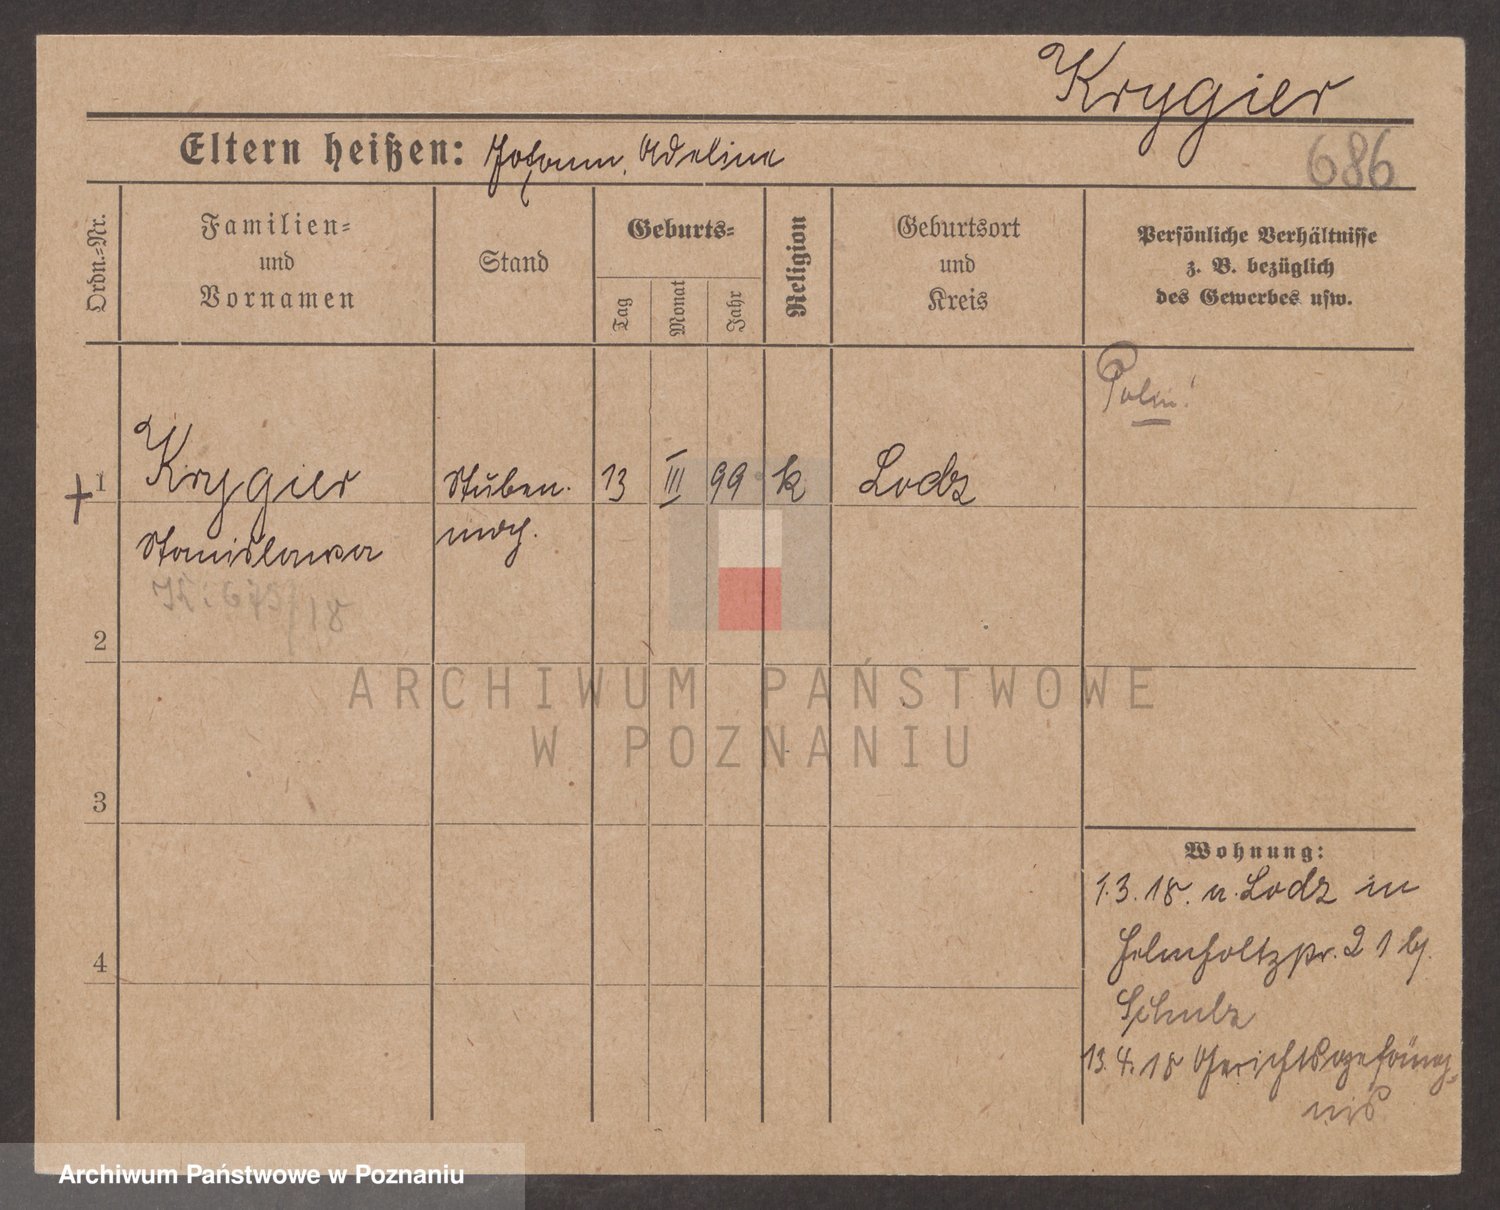 Krygier
686
Eltern heißen: Johann, Adeline
Ordn.-Nr.
Familien-
und
Vornamen
Stand
Geburts-
Tag
Monat
Jahr
Religion
Geburtsort
und
Kreis
Persönliche Verhältnisse
z. B. bezüglich
des Gewerbes usw.
Polin!
+ 1
Krygier
Stanislawa
Stuben-
mdch.
13 III 99 k Lodz
2
3
4
Wohnung:
1.3.18. v. Lodz in
Helmholtzstr. 2 I bj.
Schulz
13.4.18 Gerichtsgefäng-
nis
ARCHIWUM PAŃSTWOWE
W POZNANIU
Archiwum Państwowe w Poznaniu